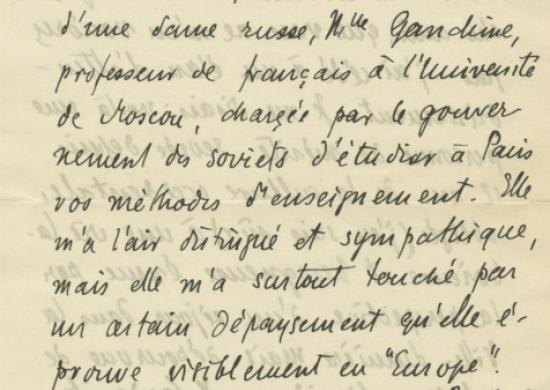 d'une dame russe, Mlle Gandine,
professeur de français à l'Université
de Moscou, chargée par le gouver
nement des soviets d'étudier à Paris
vos méthodes d'enseignement. Elle
m'a l'air distingué et sympathique,
mais elle m'a surtout touché par
un certain dépaysement qu'elle é-
prouve visiblement en "Europe".